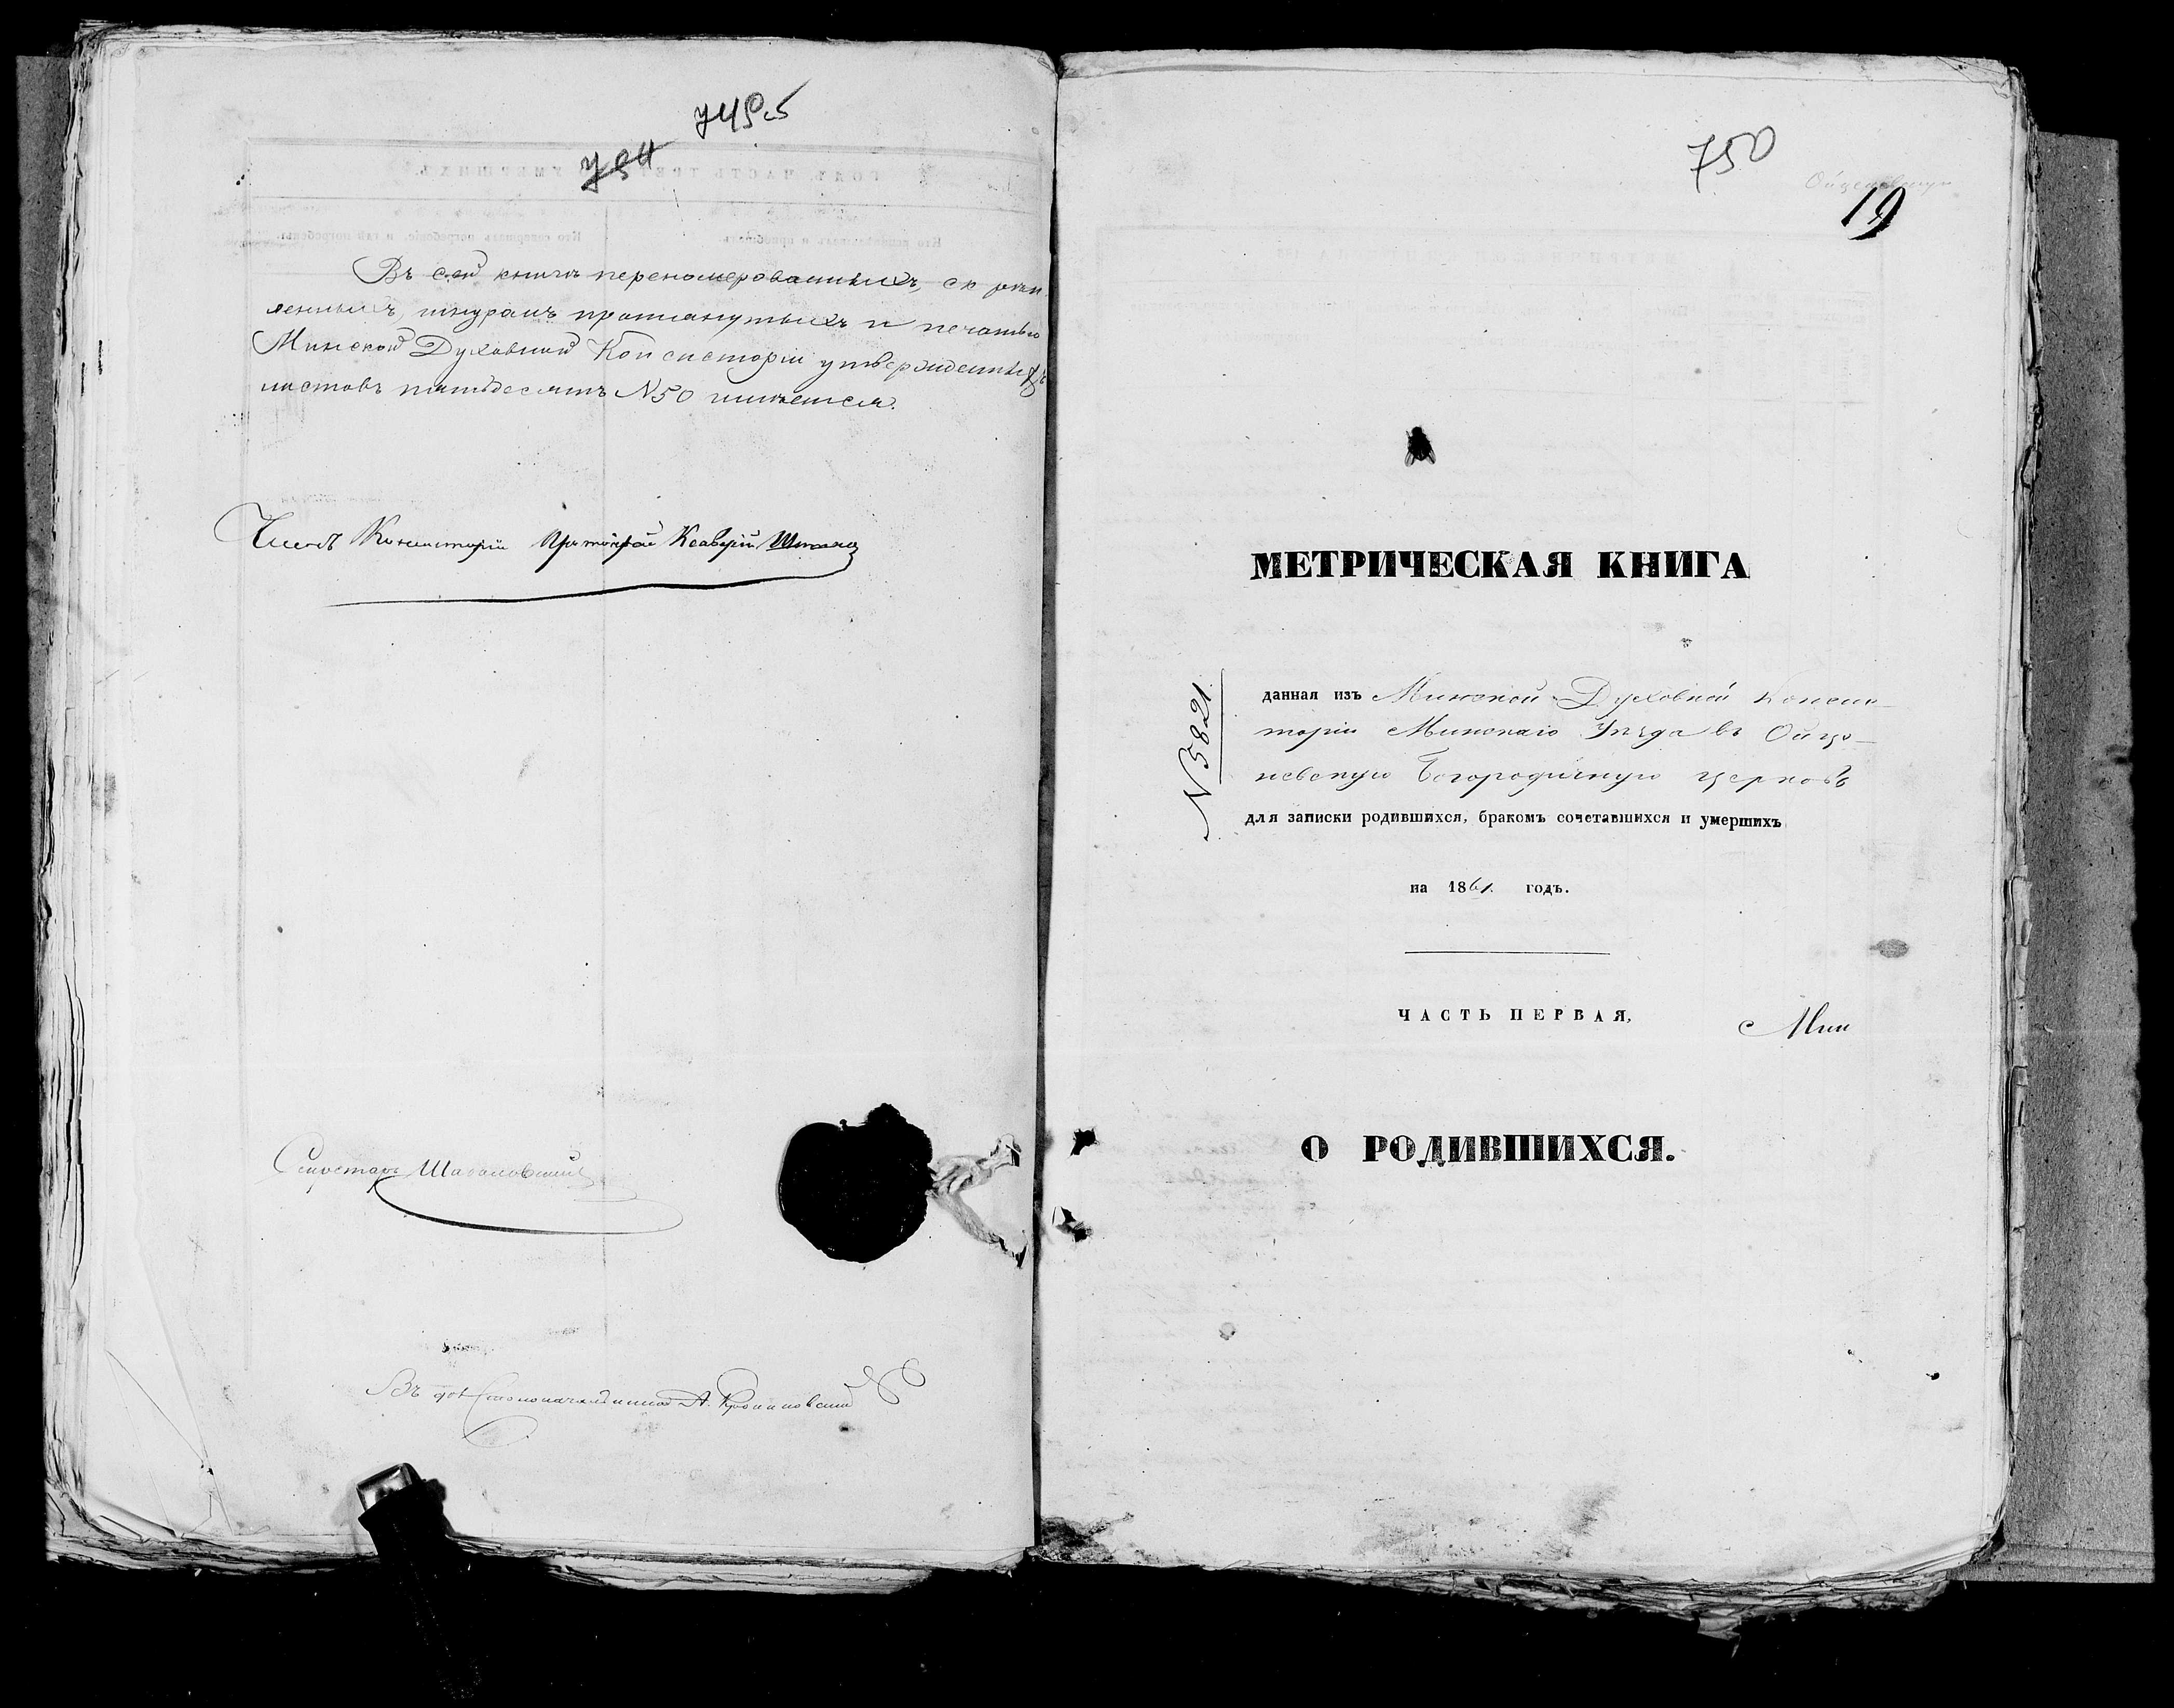 749об
754
Въ сей книгѣ перенумерованныхъ, скрѣп
ленныхъ, шнуромъ протянутыхъ и печатью
Минской Духовной Консисторіи утвержденныхъ
листовъ пятьдесятъ №50 имѣется.
Членъ Консисторіи Протоіерей
Секретарь
Столоначальника А.
750
19
МЕТРИЧЕСКАЯ КНИГА
№ 5821.
данная изъ Минской Духовной Консис-
торіи Минскаго Уѣзда въ Ойцо-
невскую Богородичную церковь
для записки родившихся, бракомъ сочетавшихся и умершихъ
на 1861. годъ.
ЧАСТЬ ПЕРВАЯ,
Мин
О РОДИВШИХСЯ.